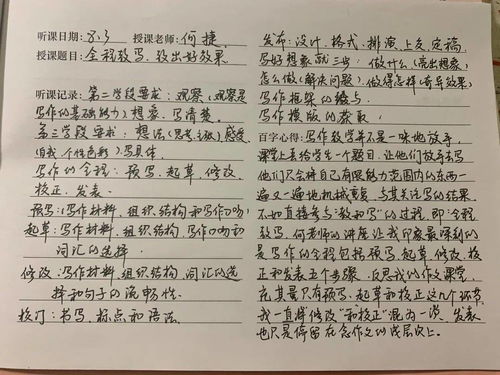 听课日期：8.3 授课老师：何捷
授课题目：全程教写，教出好效果
听课记录：第二学段要求：观察（观察是
写作的基础能力）想象、写清楚
第三学段要求：想法（思考、主张）感受
（自我个性色彩）写具体
写作的全程：预写、起草、修改、
校正、发表
预写：（写作材料、组织结构和写作口吻）
起草：写作材料、组织结构、写作口吻和
词汇的选择
修改：写作材料、组织结构、词汇的选
择和句子的流畅性
校订：书写、标点和语法
发布：设计、格式、排演上交、定稿
写好想象就三步：做什么（亮出想象）
怎么做（解决问题）做得怎样（奇异效果）
写作框架的给与
写作模版的获取
百字心得：写作教学并不是一味地放手，
课堂上丢给学生一个题目，让他们放手去写
他们只会将自己有限能力范围内的东西一
遍又一遍地机械重复，与其关注写的结果
不如直接参与“教和写”的过程，即“全程
教写，何老师的讲座让我印象最深刻的
是写作的全程包括预写、起草、修改、校
正和发表五个步骤，反思我的作文课堂
充其量只有预写、起草和校正这几个环节
我一直将“修改”和“校正”混为一谈，发表
也只是停留在念作文的浅层次上。